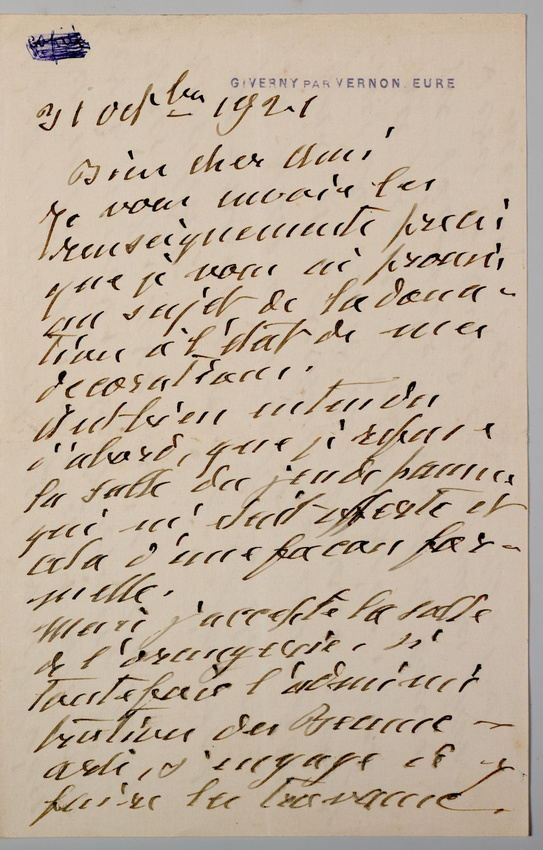 GIVERNY PAR VERNON. EURE
31 octbre 1921
Bien cher Ami
Je vous envoie les
renseignements precis
que je vous ai promis,
au sujet de la dona-
tion à l'état de mes
decorations.
Il est bien entendu
d'abord, que je refuse
la salle du jeu de paume
qui m'était offerte et
cela d'une façon for-
melle.
Mais j'accepte la salle
de l'orangerie, si
toutefois l'adminis
tration des Beaux-
arts, s'engage à y
faire les travaux